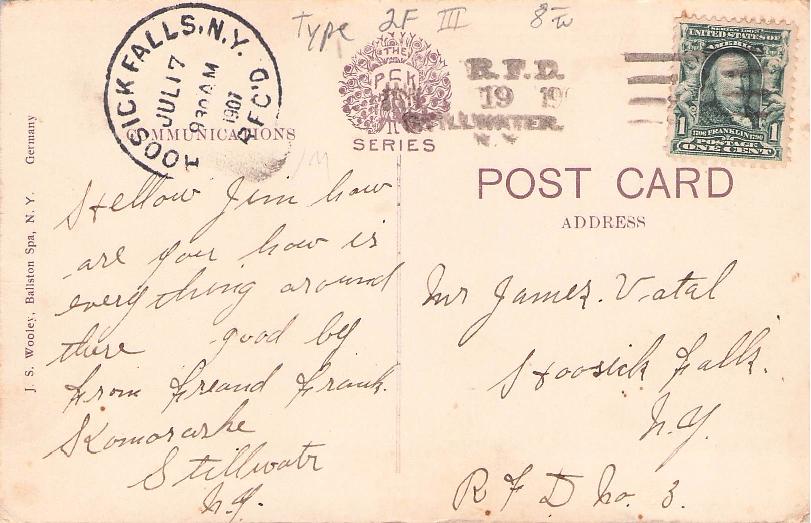 Type 2F III 8-
HOOSICK FALLS, N.Y.
JUL 17
930 AM
1907
REC'D.
THE
P C K
SERIES
R.F.D.
19 19
STILLWATER.
N.Y.
SERIES 1902
UNITED STATES OF
AMERICA
1706 FRANKLIN 1790
POSTAGE
1 ONE CENT 1
COMMUNICATIONS
POST CARD
ADDRESS
J. S. Wooley, Ballston Spa, N. Y. Germany
Hellow Jim how
are you how is
everything around
there good by
from freand frank.
Komorarske
Stillwatr
N.Y.
Mr James. Vatal
Hoosick falls.
N.Y.
R F D No. 3.